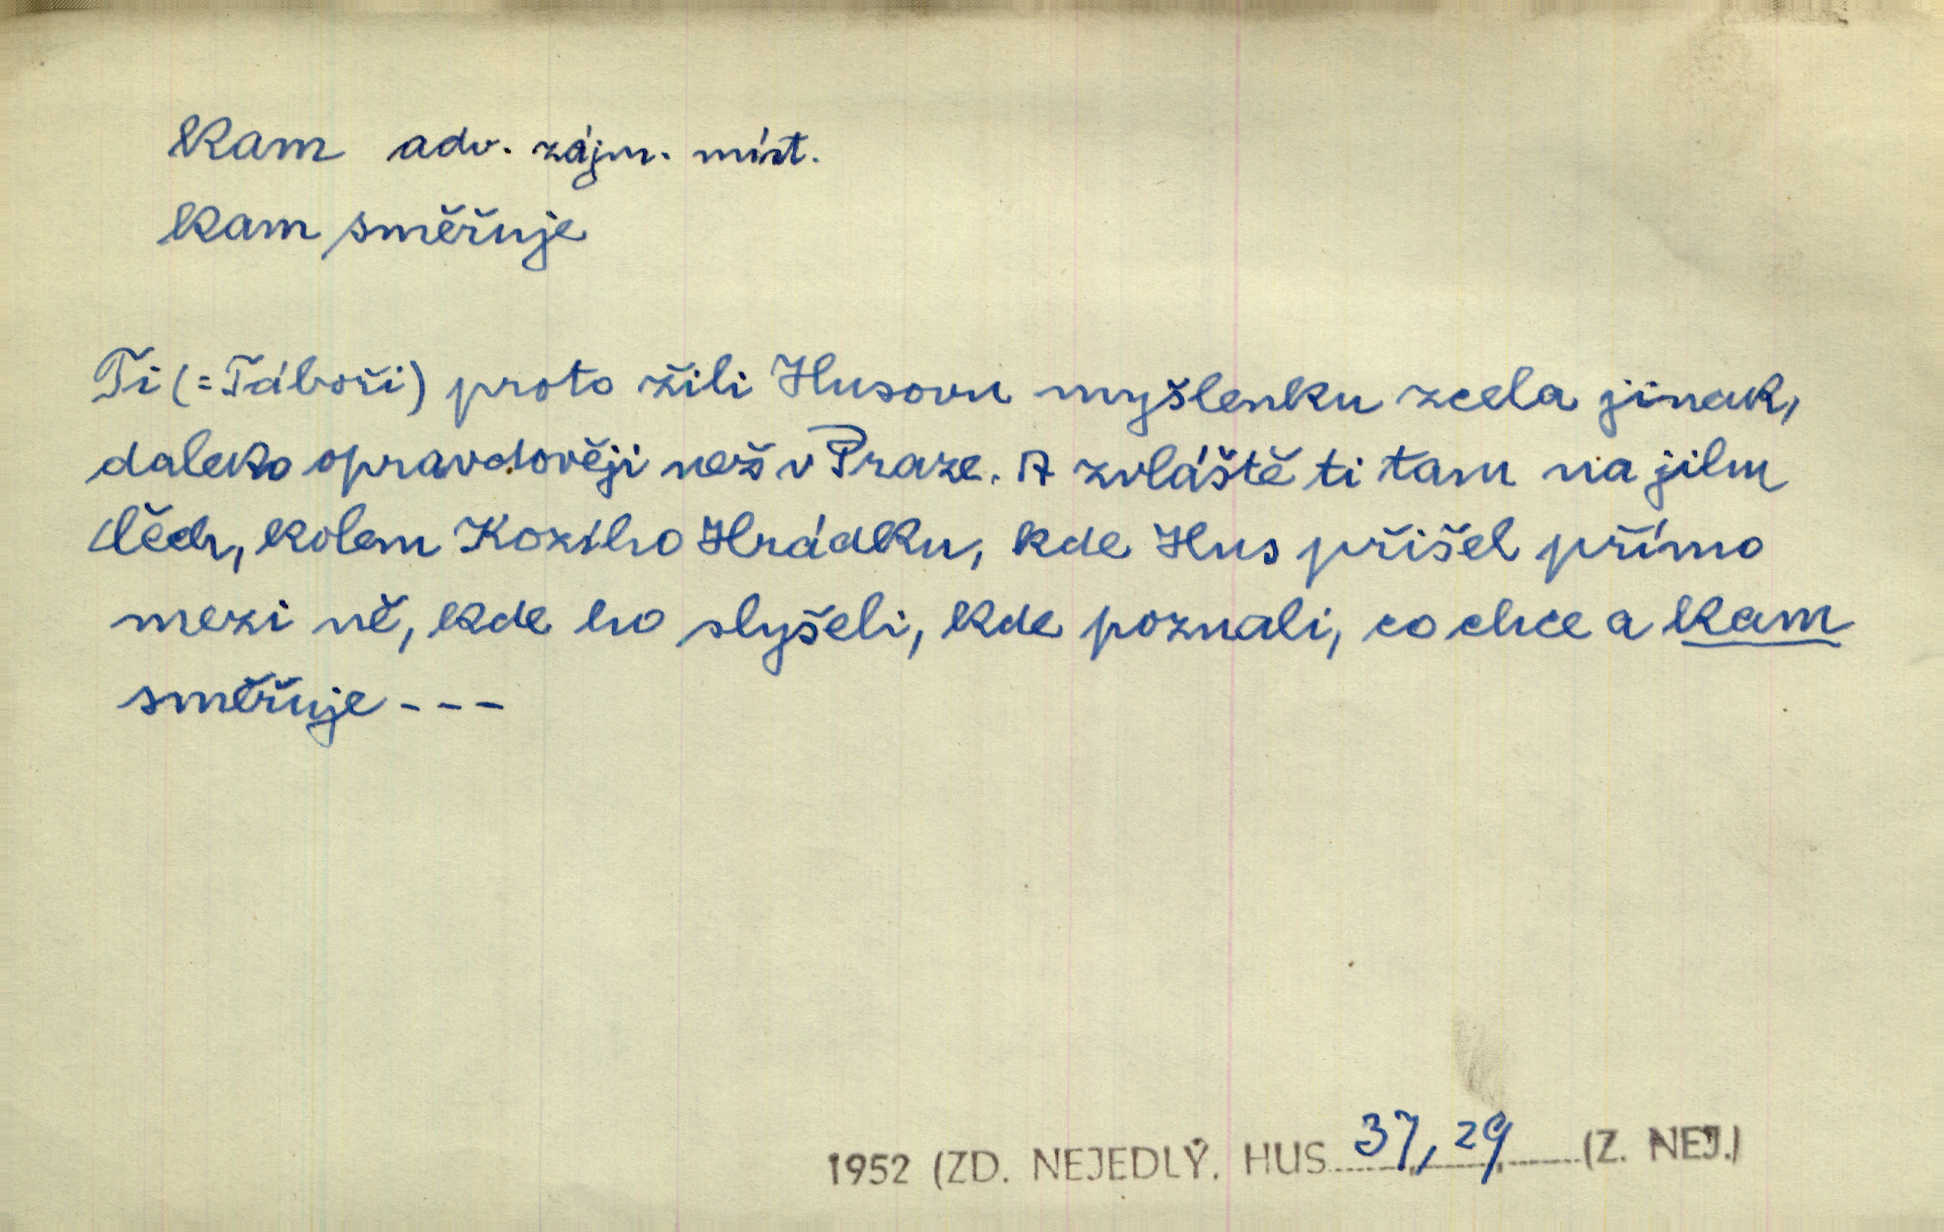 kam adv. zájm. míst.
kam směřuje
Ti (=Táboři) proto žili Husovu myšlenku zcela jinak,
daleko opravdověji než v Praze. A zvláště ti tam na jihu
Čech, kolem Kozího Hrádku, kde Hus přišel přímo
mezi ně, kde ho slyšeli, kde poznali, co chce a kam
směřuje ---
1952 (ZD. NEJEDLÝ, HUS 37, 29 (Z. NEJ.)